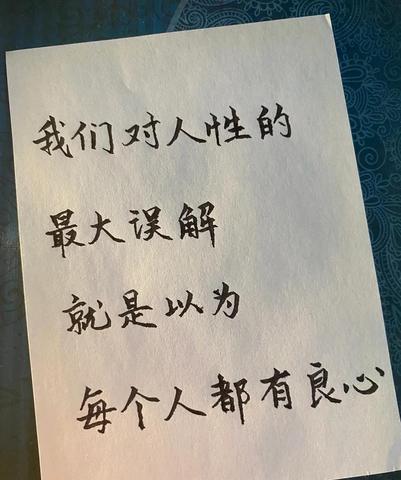 我们对人性的
最大误解
就是以为
每个人都有良心